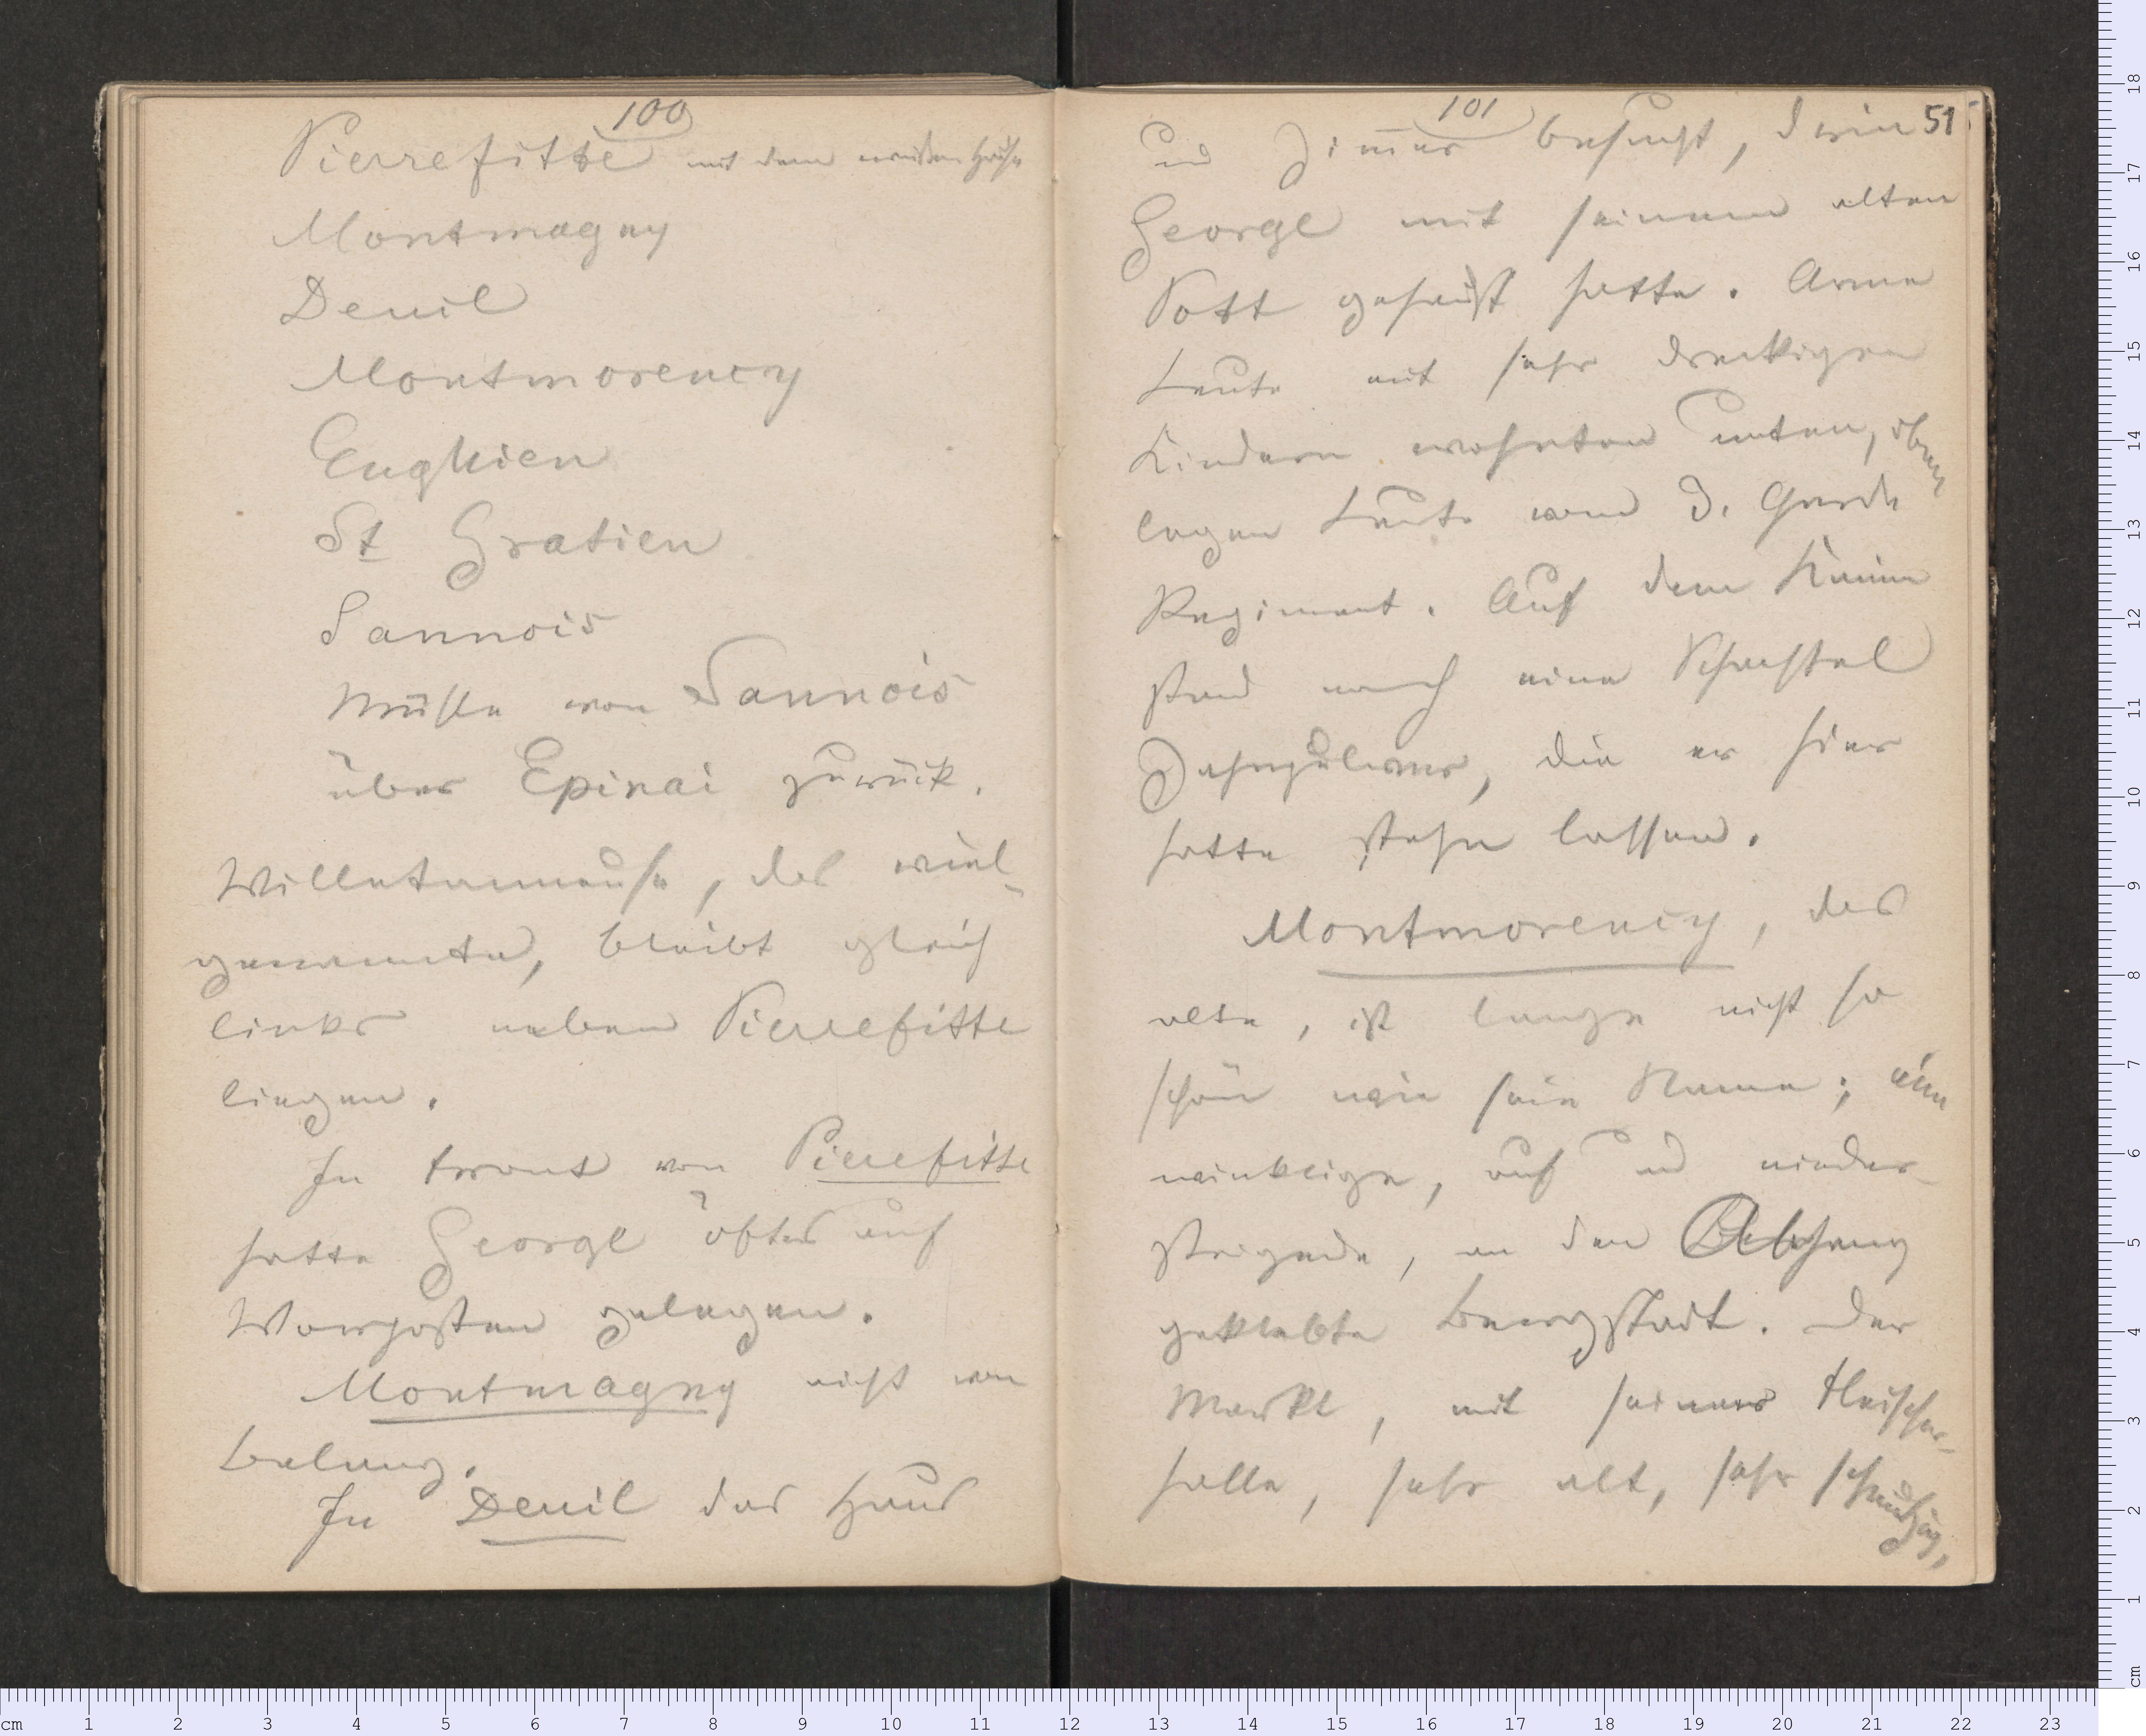 100
Pierrefitte mit dem weißen Hause
Montmagny
Deuil
Montmorency
Enghien
St Gratien
Sannois
Mühle von Sannois
über Epinai zurück.
Villetaneuse, das viel-
genannte, bleibt gleich
links neben Pierrefitte
liegen.
In Front von Pierrefitte
hatte George öfters auf
Vorposten gelegen.
Montmagny nicht von
Belang.
In Deuil das Haus
101
51
und Zimmer besucht, drin
George mit seinem alten
Pott gehaust hatte. Arme
Leute mit sehr dreckigen
Kindern wohnten unten, oben
lagen Leute vom 3. Garde
Regiment. Auf dem Kamin
stand noch eine Schachtel
Zahnpulver, die er hier
hatte stehn lassen.
Montmorency, das
alte, ist lange nicht so
schön wie sein Name; eine
winklige, auf und nieder-
steigende, an den Abhang
geklebte Bergstadt. Der
Markt, mit seiner Fleischer-
halle, sehr alt, sehr schmutzig,